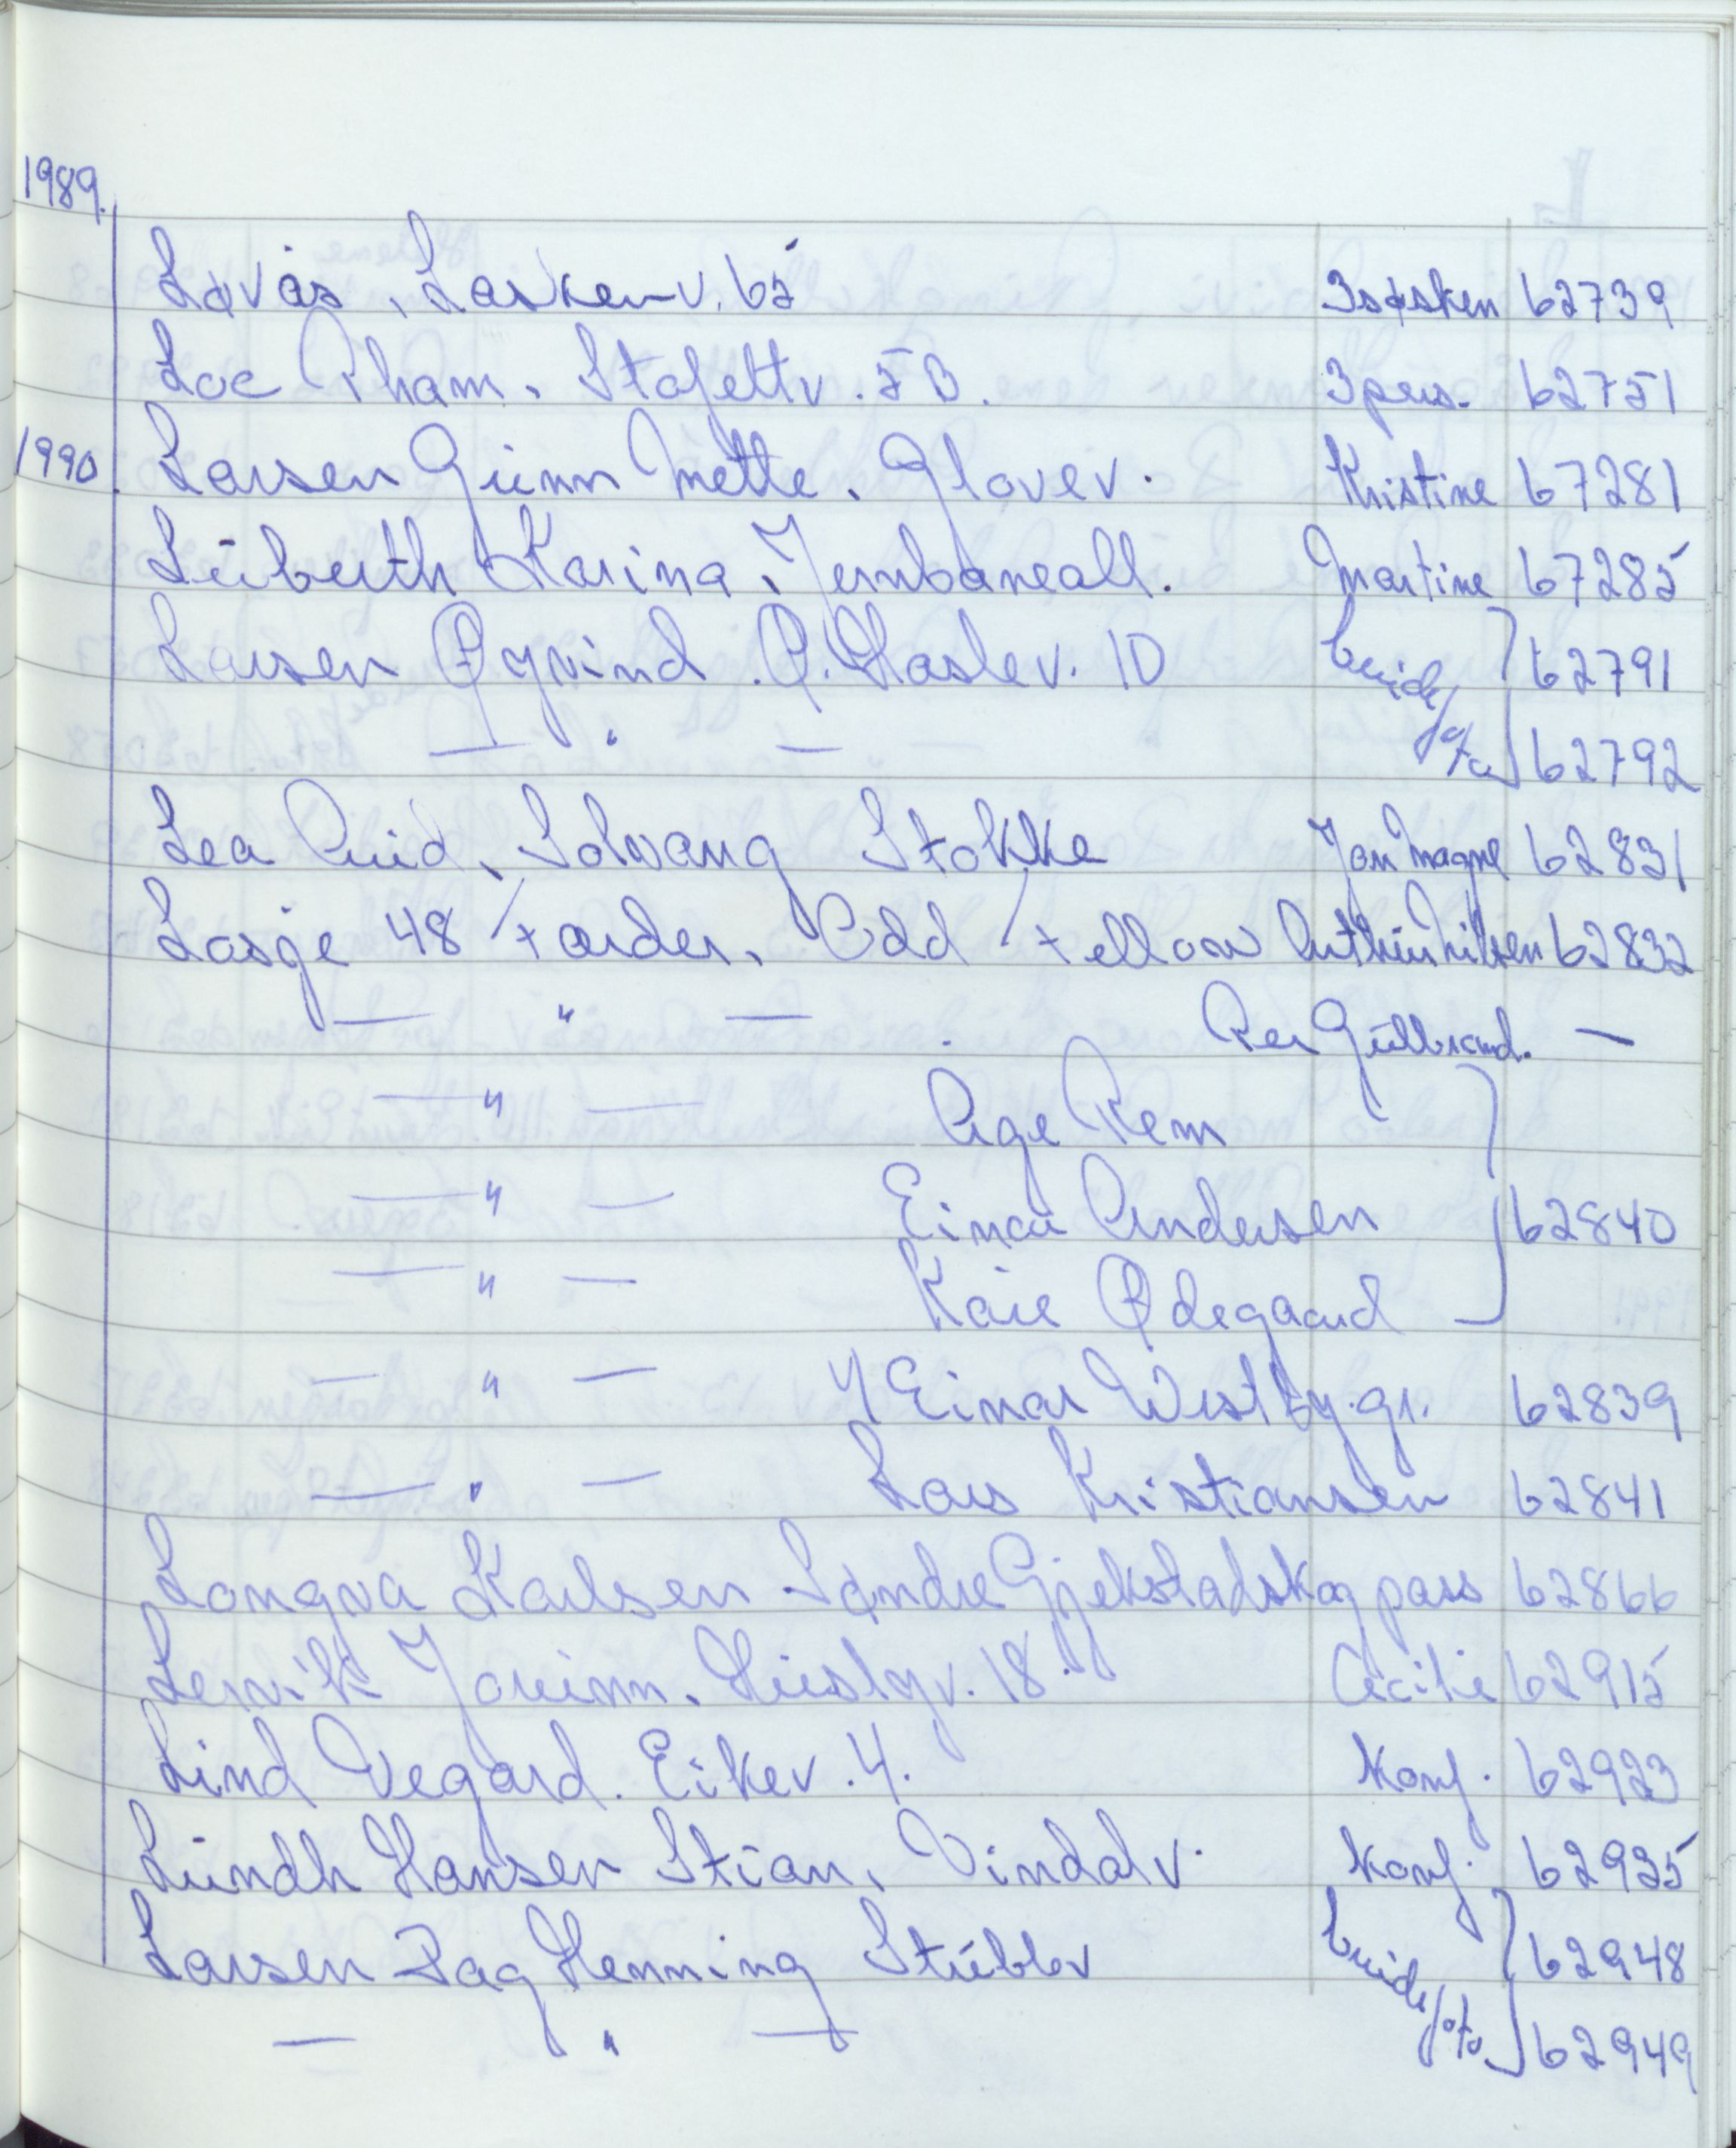 1989.
Løvås, Laskenv. 65 3 søsken 62739
Loc Pham. Stafettv. 5B. 3 pers. 62751
1990. Larsen Gunn Mette. Glavev. Kristine 67281
Lübeuth Karina, Jernbaneall. Martine 67285
Larsen Øyvind. Ø. Haslev. 1D brudef 62791
— " — oto 62792
Lea Auid, Solvang Stokke Jan Magne 62831
Losje 48 Færder. Odd Fellow Arthur Nilsen 62832
— " — Per Gullbrand. —
— " — Åge Rem
— " — Einar Andersen 62840
— " — Kåre Ødegaard
— " — 4 Einar Westby. gr. 62839
— " — Lars Kristiansen 62841
Longva Karlsen Søndre Gjekstadskog pass 62866
Lervik Jorunn. Huslyv. 18. Cecilie 62915
Lind Vegard. Eikev. 4. Konf. 62923
Lundh Hansen Stian, Vindalv. Konf. 62935
Larsen Dag Henning Stubbv brudef 62948
— " — oto 62949